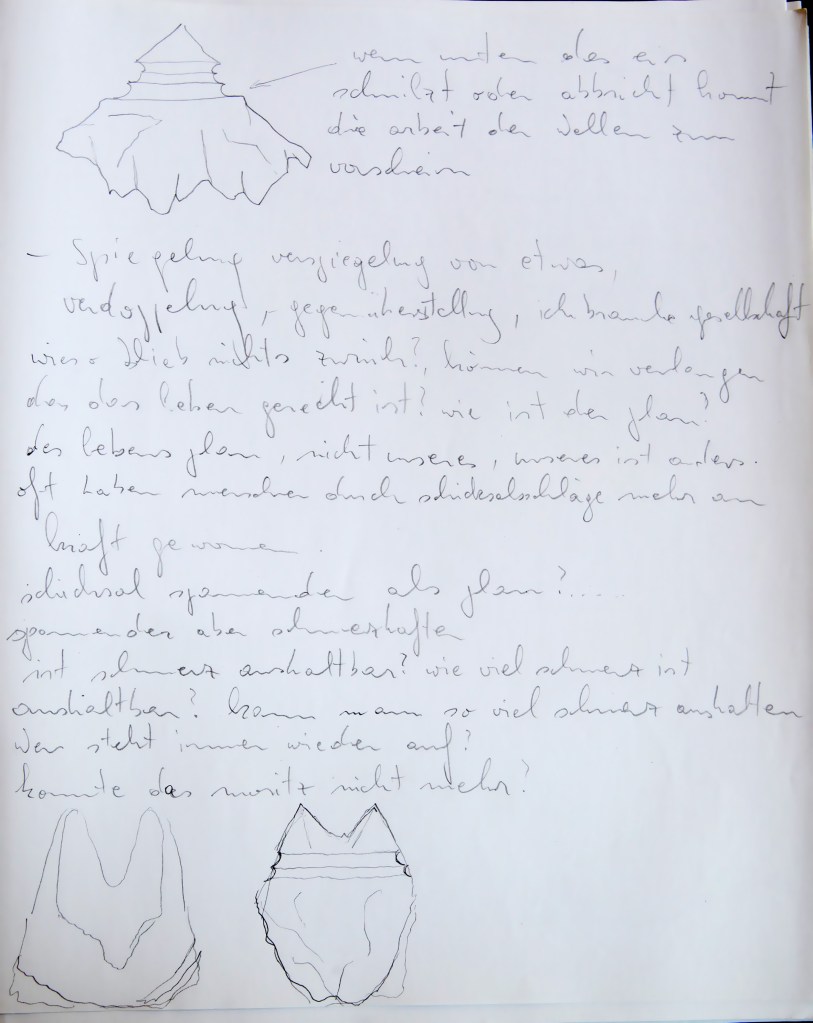 wenn unten das eis
schmilzt oder abbricht kommt
die arbeit der Wellen zum
vorschein
- Spiegelung verspiegelung von etwas,
verdoppelung, gegenüberstellung, ich brauche gesellschaft
wieso blieb nichts zurück?, können wir verlangen
das das leben gerecht ist? wie ist der plan?
des lebens plan, nicht unseres, unseres ist anders.
oft haben menschen durch schicksalschläge mehr an
kraft gewonnen.
schicksal spannender als plan?.....
spannender aber schmerzhafter
ist schmerz aushaltbar? wie viel schmerz ist
aushaltbar? kann man so viel schmerz aushalten
Wer steht immer wieder auf?
konnte das moritz nicht mehr?